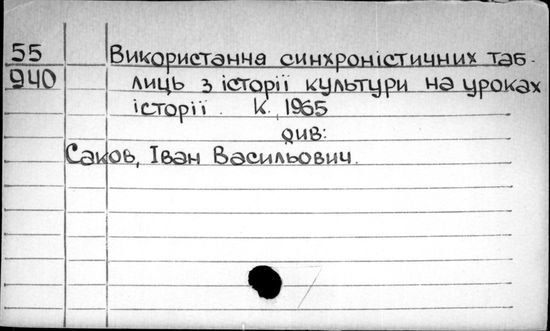 55 Використання синхроністичних таб-
940 лиць з історії культури на уроках
історії. К., 1965
див:
Саков, Іван Васильович.